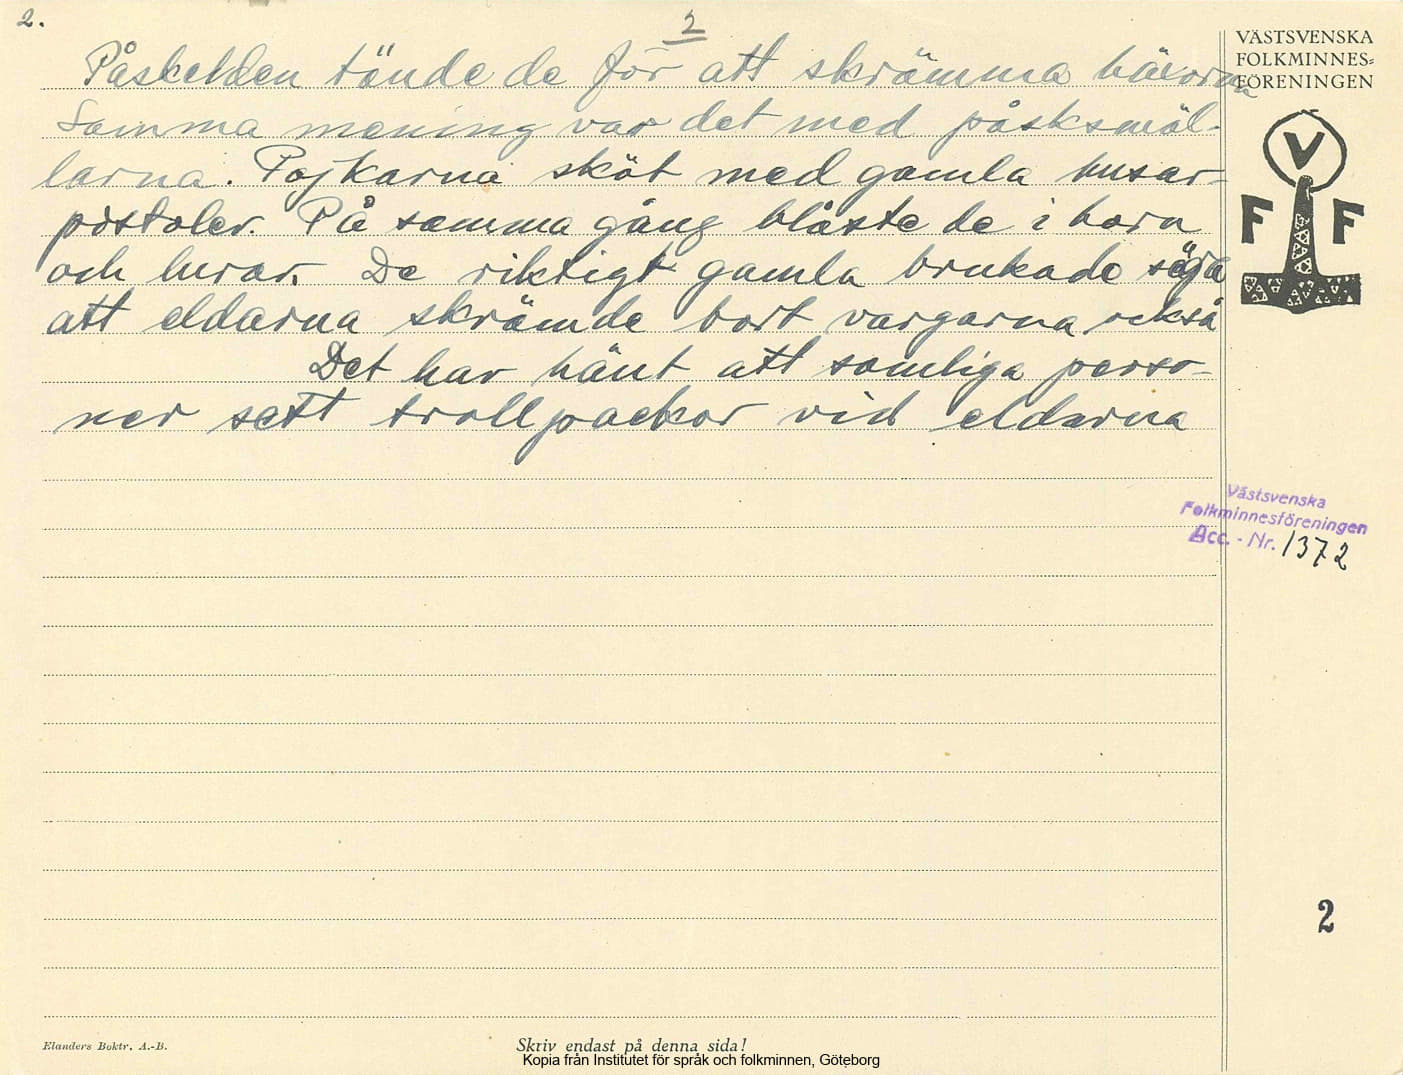 2.
2
VÄSTSVENSKA
FOLKMINNES=
FÖRENINGEN
Påskelden tände de för att skrämma häxorna
Samma mening var det med påsksmäl-
larna. Pojkarna sköt med gamla husar-
pistoler. På samma gång blåste de i horn
och lurar. De riktigt gamla brukade säga
att eldarna skrämde bort vargarna också
Det har hänt att somliga perso-
ner sett trollpackor vid eldarna
V
F F
Västsvenska
Folkminnesföreningen
Acc. - Nr. 1372
2
Elanders Boktr. A.-B.
Skriv endast på denna sida!
Kopia från Institutet för språk och folkminnen, Göteborg